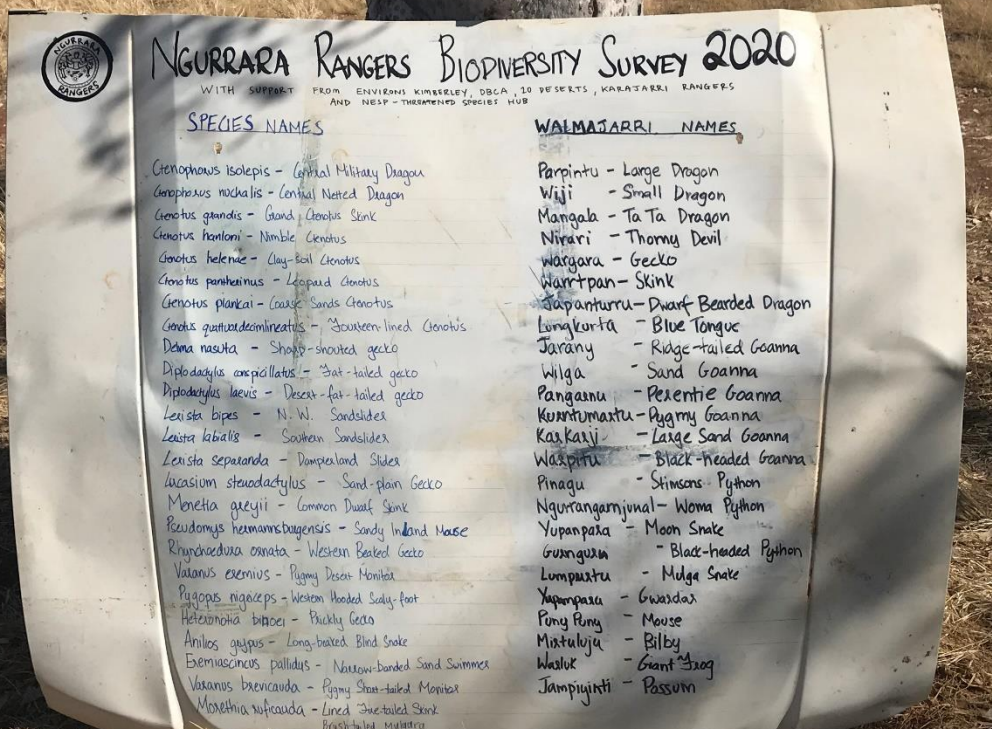 NGURRARA RANGERS
NGURRARA RANGERS BIODIVERSITY SURVEY 2020
WITH SUPPORT FROM ENVIRONS KIMBERLEY, DBCA, 10 DESERTS, KARAJARRI RANGERS
AND NESP - THREATENED SPECIES HUB
SPECIES NAMES
Ctenophorus isolepis - Central Military Dragon
Ctenophorus nuchalis - Central Netted Dragon
Ctenotus grandis - Grand Ctenotus Skink
Ctenotus hanloni - Nimble Ctenotus
Ctenotus helenae - Clay-soil Ctenotus
Ctenotus pantherinus - Leopard Ctenotus
Ctenotus piankai - Coarse Sands Ctenotus
Ctenotus quattuordecimlineatus - Fourteen-lined Ctenotus
Delma nasuta - Sharp-snouted gecko
Diplodactylus conspicillatus - Fat-tailed gecko
Diplodactylus laevis - Desert-fat-tailed gecko
Lerista bipes - N.W. Sandslider
Lerista labialis - Southern Sandslider
Lerista separanda - Dampierland Slider
Lucasium stenodactylus - Sand-plain Gecko
Menetia greyii - Common Dwarf Skink
Pseudomys hermannsburgensis - Sandy Inland Mouse
Rhynchoedura ornata - Western Beaked Gecko
Varanus eremius - Pygmy Desert Monitor
Pygopus nigriceps - Western Hooded Scaly-foot
Heteronotia binoei - Prickly Gecko
Anilios grypus - Long-beaked Blind Snake
Eremiascincus pallidus - Narrow-banded Sand Swimmer
Varanus brevicauda - Pygmy Short-tailed Monitor
Morethia ruficauda - Lined Fire-tailed Skink
Brush-tailed Mulgara
WALMAJARRI NAMES
Parpintu - Large Dragon
Wiji - Small Dragon
Mangala - Ta Ta Dragon
Nirari - Thorny Devil
Wargara - Gecko
Warrtpan - Skink
Japanturru - Dwarf Bearded Dragon
Lungkurta - Blue Tongue
Jarany - Ridge-tailed Goanna
Wilga - Sand Goanna
Pangarnu - Perentie Goanna
Kurntumartu - Pygmy Goanna
Karkarji - Large Sand Goanna
Warpitu - Black-headed Goanna
Pinagu - Stimsons Python
Ngurrangarnjunal - Woma Python
Yupanpara - Moon Snake
Gurngurn - Black-headed Python
Lumpurtu - Mulga Snake
Yupanpara - Gwardar
Puny Puny - Mouse
Mirtuluja - Bilby
Warluk - Giant Frog
Jampiyirti - Possum